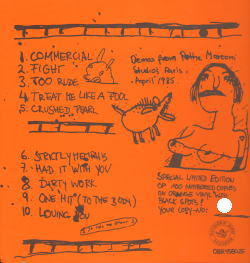 1. COMMERCIAL
2. FIGHT
3. TOO RUDE
4. TREAT ME LIKE A FOOL
5. CRUSHED PEARL
Demos from Pathe Marconi
Studios Paris.
April 1985.
6. STRICTLY MEGABUS
7. HAD IT WITH YOU
8. DIRTY WORK
9. ONE HIT (TO THE BODY)
10. LOVING YOU
SPECIAL LIMITED EDITION
OF 100 NUMBERED COPIES
ON ORANGE VINYL WITH
BLACK SPOTS!
YOUR COPY-NO: